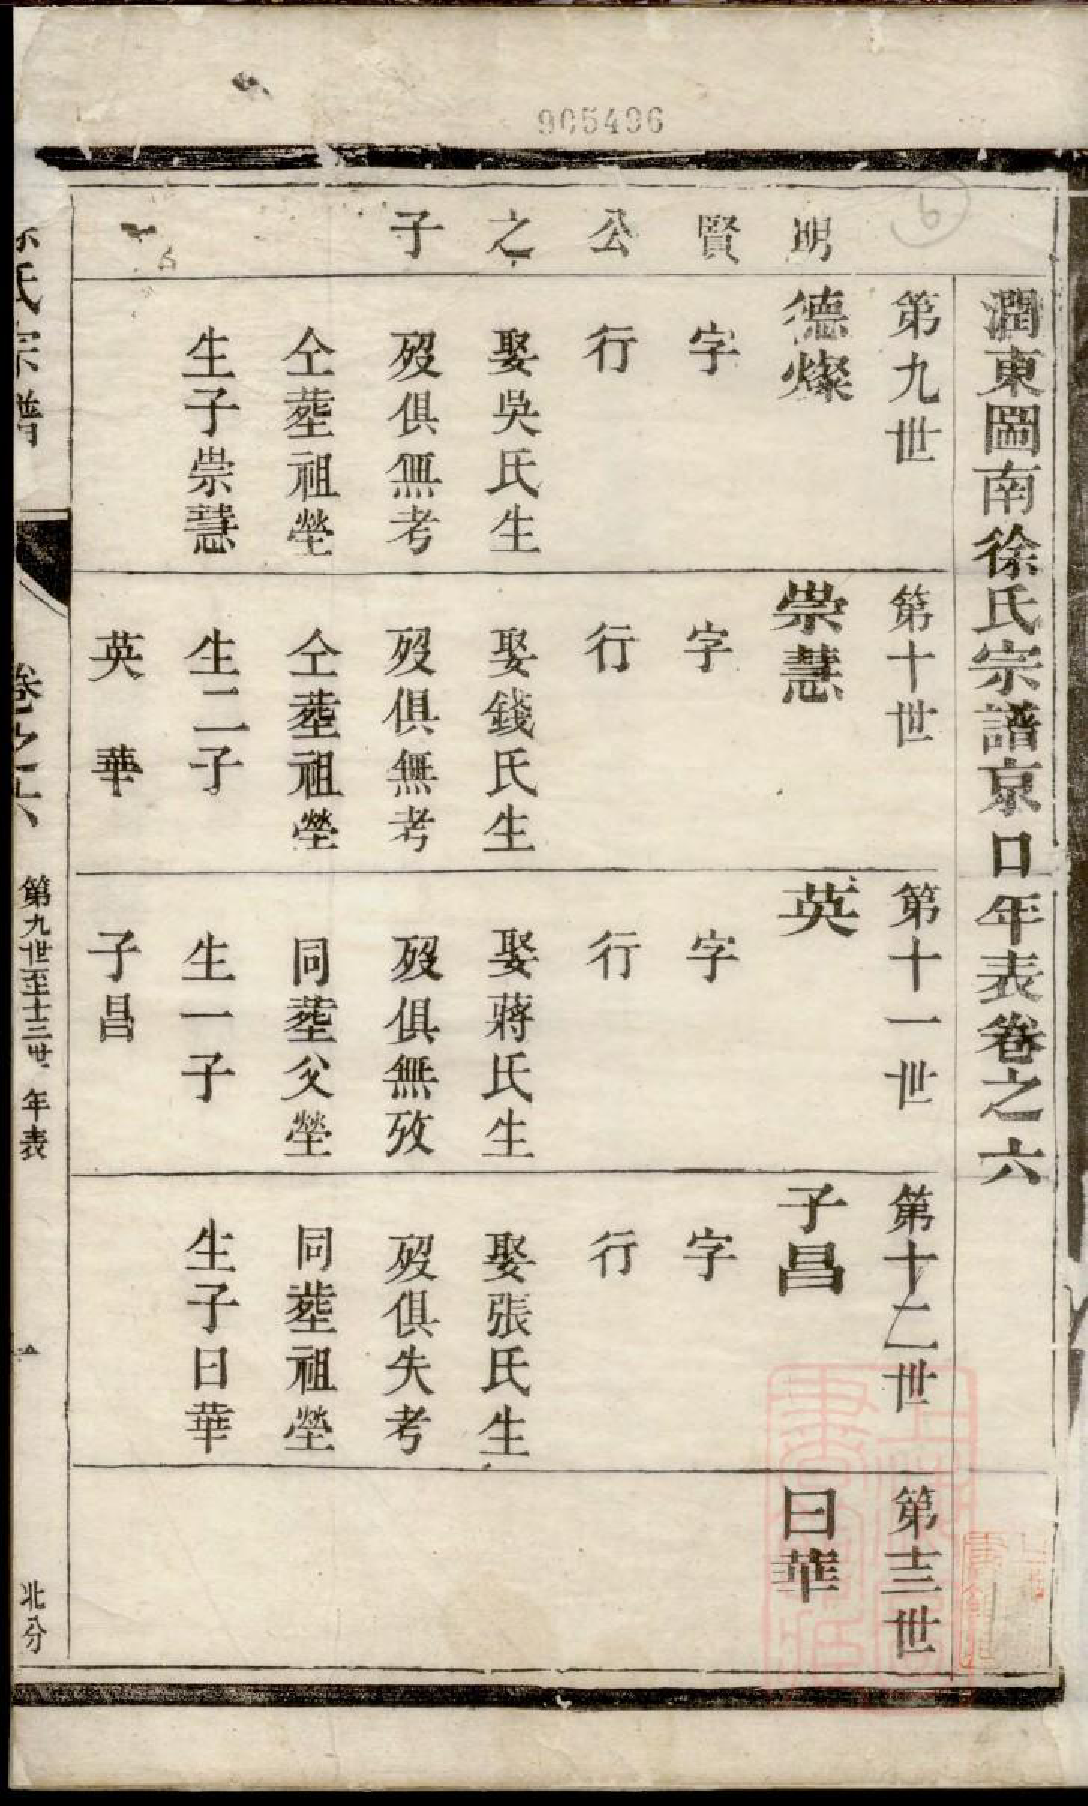 905496
6
潤東圌南徐氏宗譜京口年表卷之六
明賢公之子
第九世
德燦
字
行
娶吳氏生
歿俱無考
仝塟祖塋
生子崇慧
第十世
崇慧
字
行
娶錢氏生
歿俱無考
仝塟祖塋
生二子
英 華
第十一世
英
字
行
娶蔣氏生
歿俱無攷
同塟父塋
生一子
子昌
第十二世
子昌
字
行
娶張氏生
歿俱失考
同塟祖塋
生子日華
第十三世
日華
徐氏宗譜
卷之六
第九世至十三世 年表
一
北分